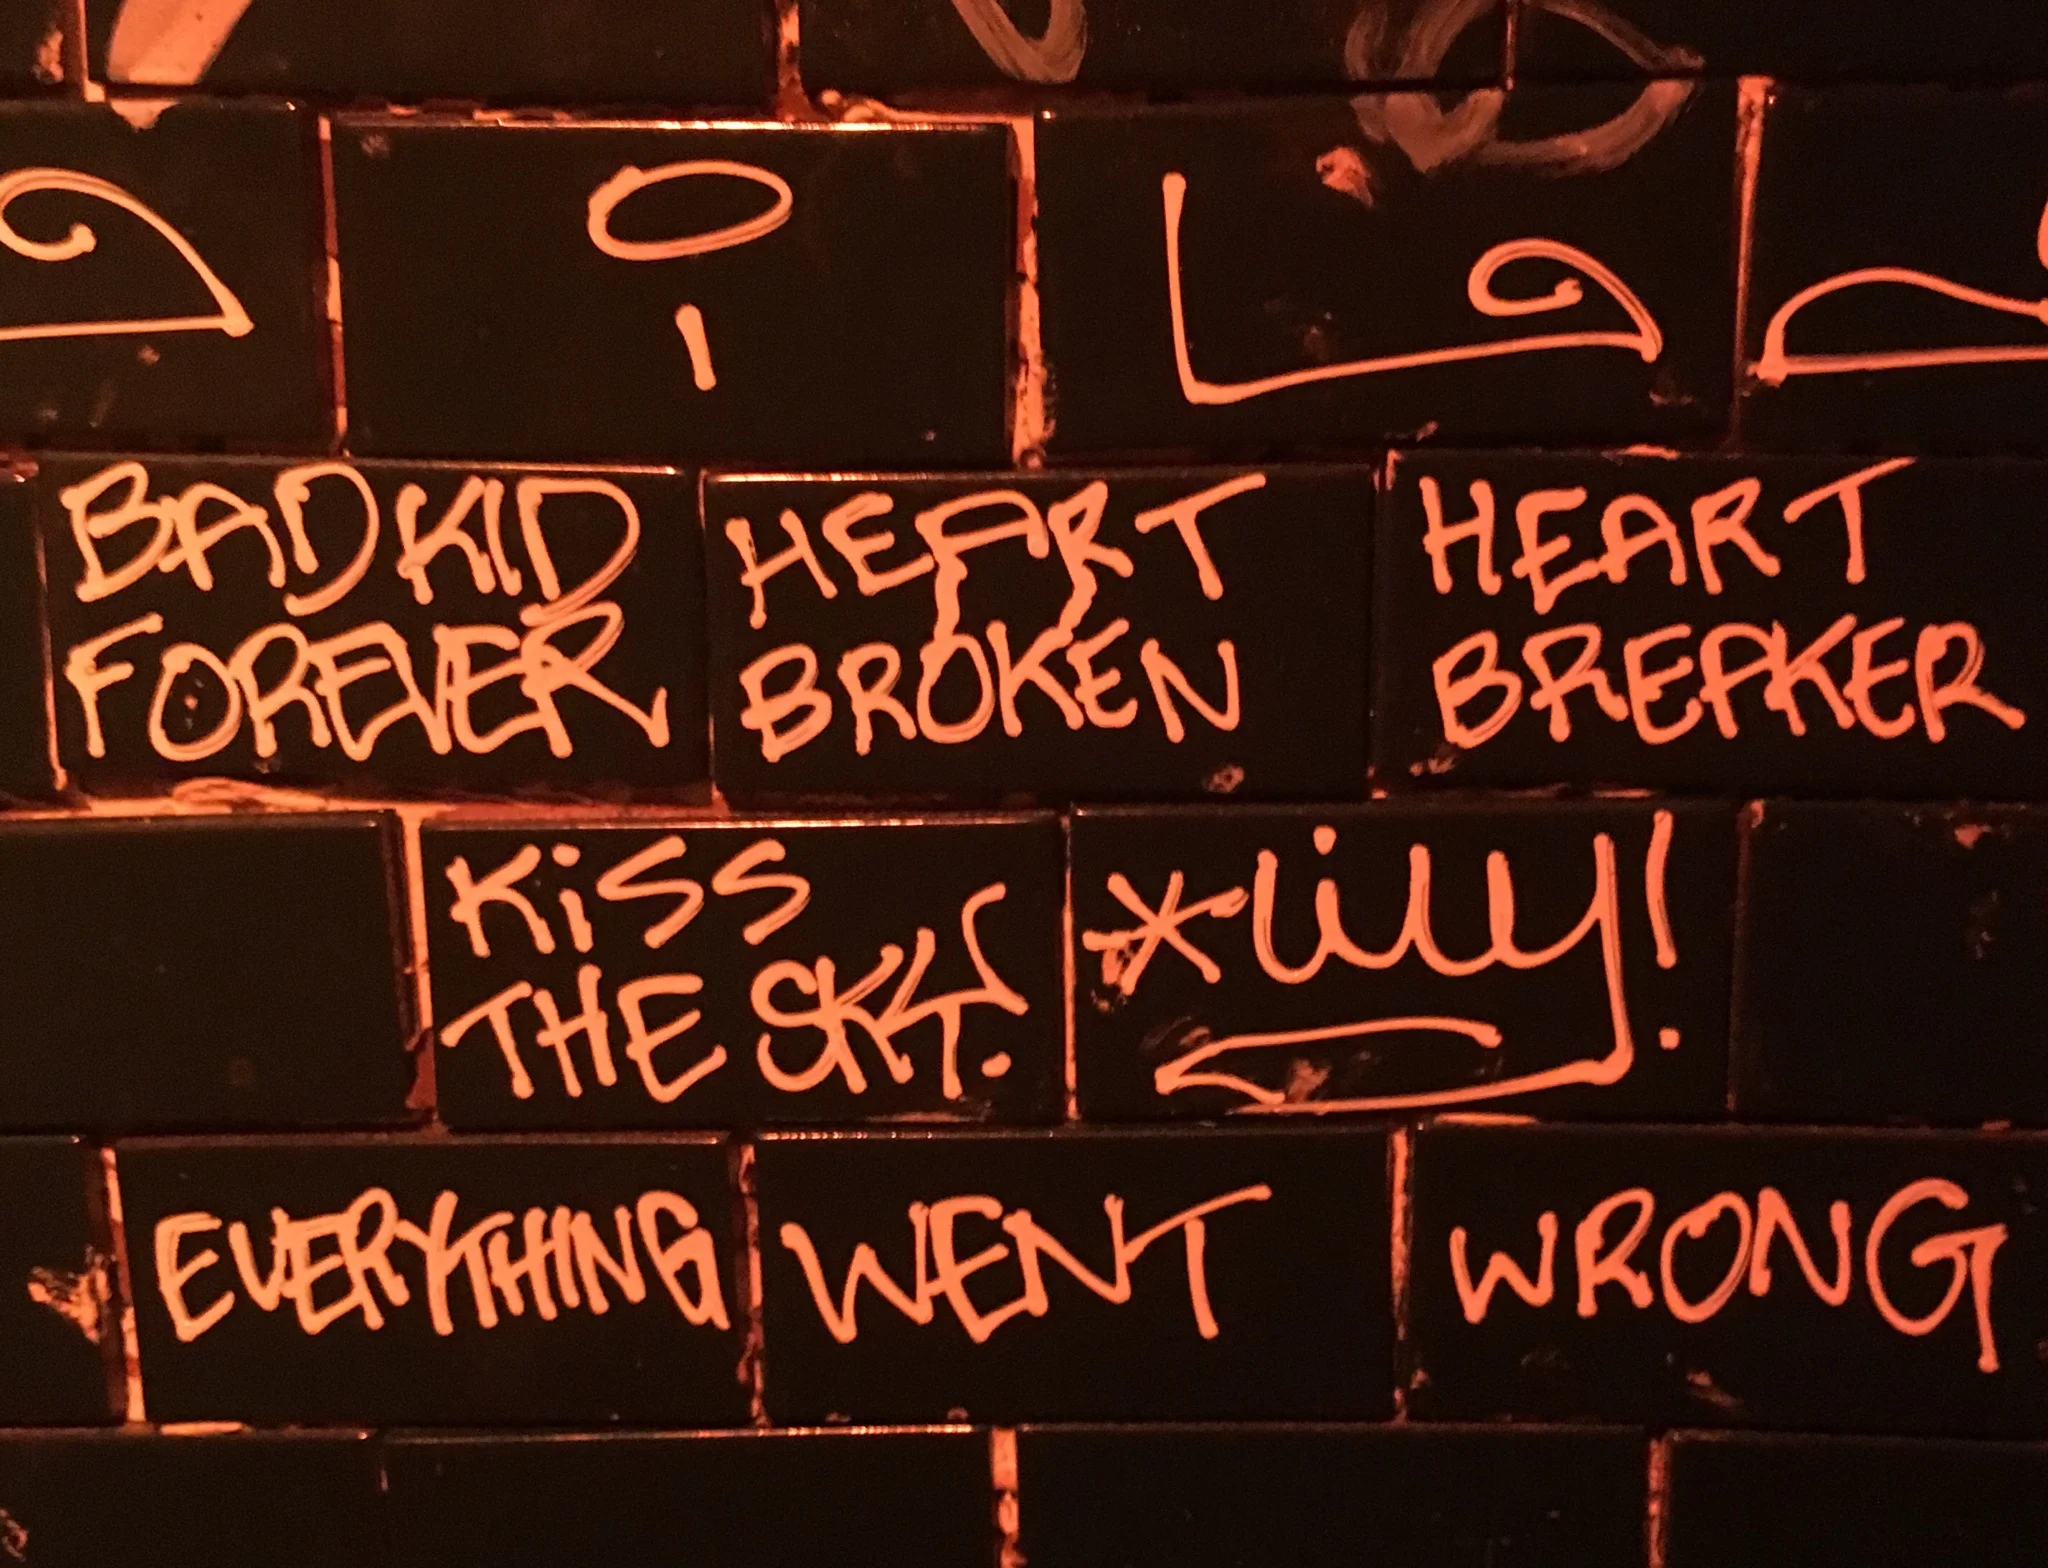 BAD KID
FOREVER
HEART
BROKEN
HEART
BREAKER
KiSS
THE SKY.
*Lilly!
EVERYTHING WENT WRONG